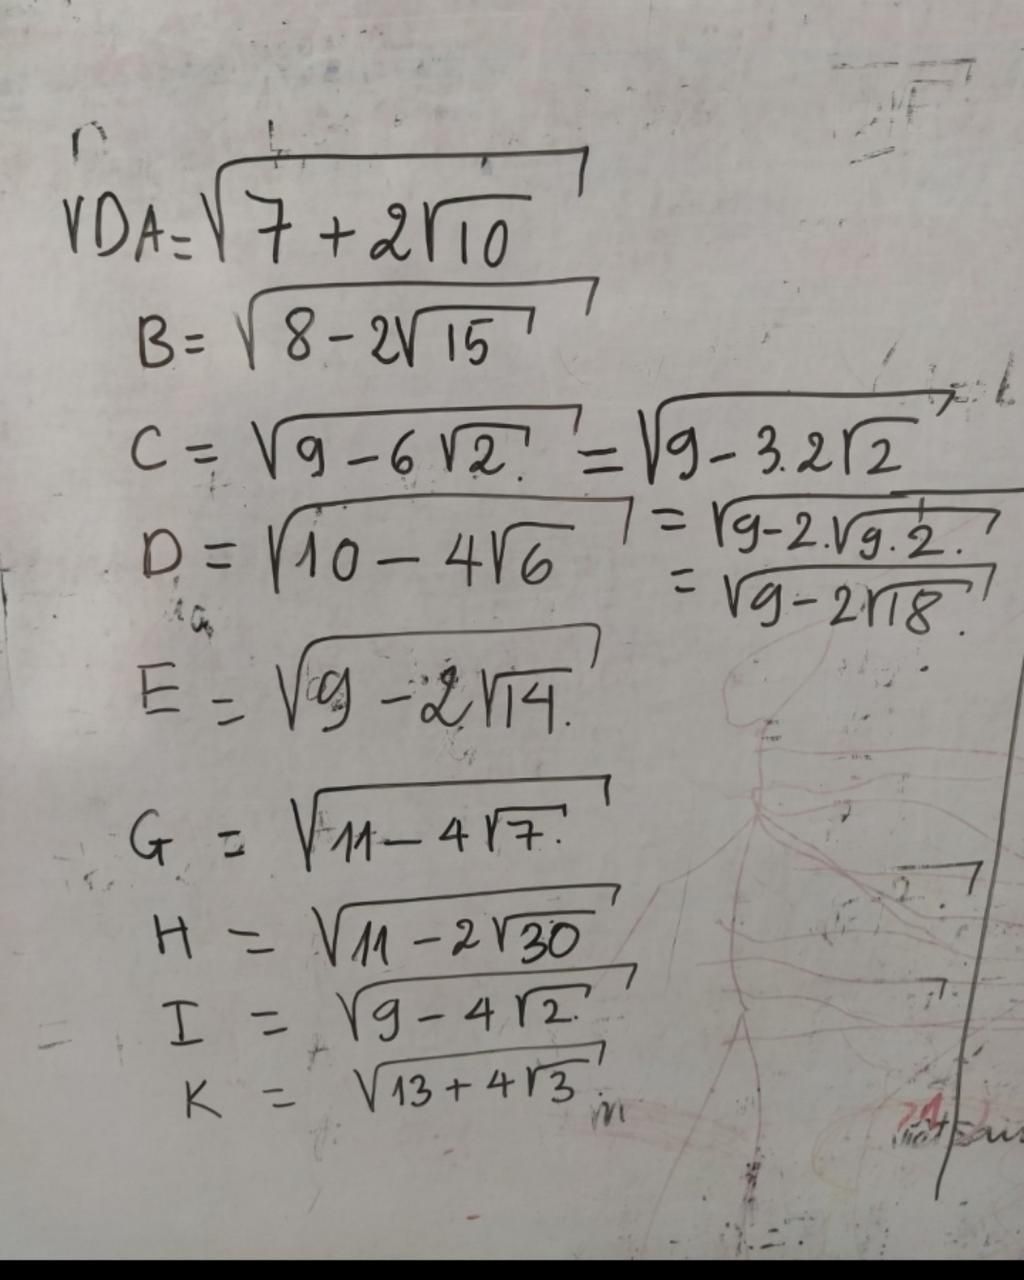 VD A = √(7 + 2√10)
B = √(8 - 2√15)
C = √(9 - 6√2) = √(9 - 3.2√2)
= √(9 - 2.√(9.2))
= √(9 - 2√18)
D = √(10 - 4√6)
E = √(9 - 2√14)
G = √(11 - 4√7)
H = √(11 - 2√30)
I = √(9 - 4√2)
K = √(13 + 4√3)